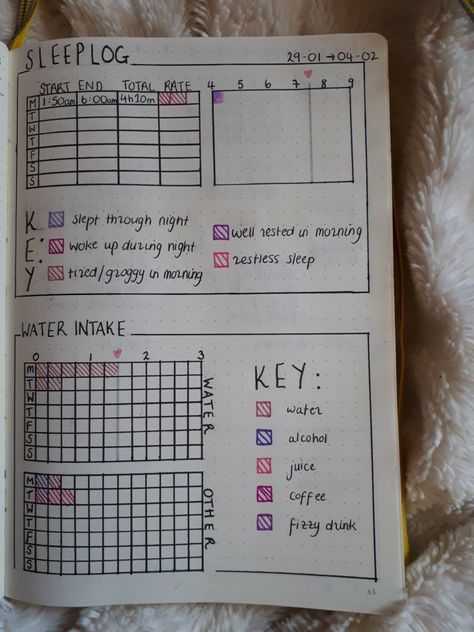 SLEEPLOG
29-01 → 04-02
START END TOTAL RATE
4 5 6 7 8 9
M 1:50am 6:00am 4h10m
T
W
T
F
S
S
KEY:
slept through night
woke up during night
tired/groggy in morning
well rested in morning
restless sleep
WATER INTAKE
0 1 2 3
M
T
W
T
F
S
S
WATER
M
T
W
T
F
S
S
OTHER
KEY:
water
alcohol
juice
coffee
fizzy drink
63